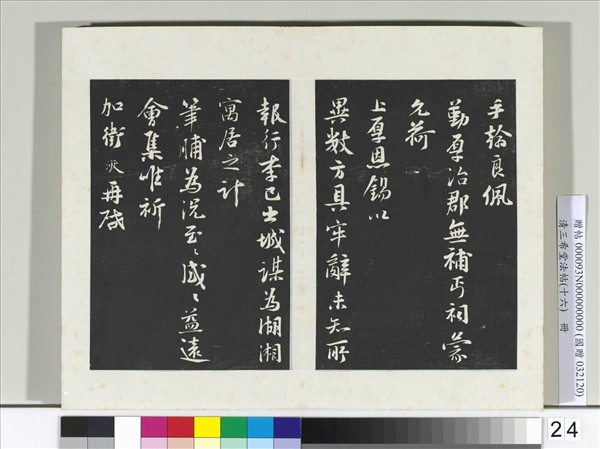 手翰良佩
勤厚治郡無補丐祠蒙
允荷
上厚恩錫以
異數方具牢辭未知所
報行李已出城謀為湖湘
寓居之計
筆脯為況至ゝ感ゝ益遠
會集唯祈
加衛 再啟
贈帖 000093N000000000 (國贈 032120)
清三希堂法帖(十六) 冊
24